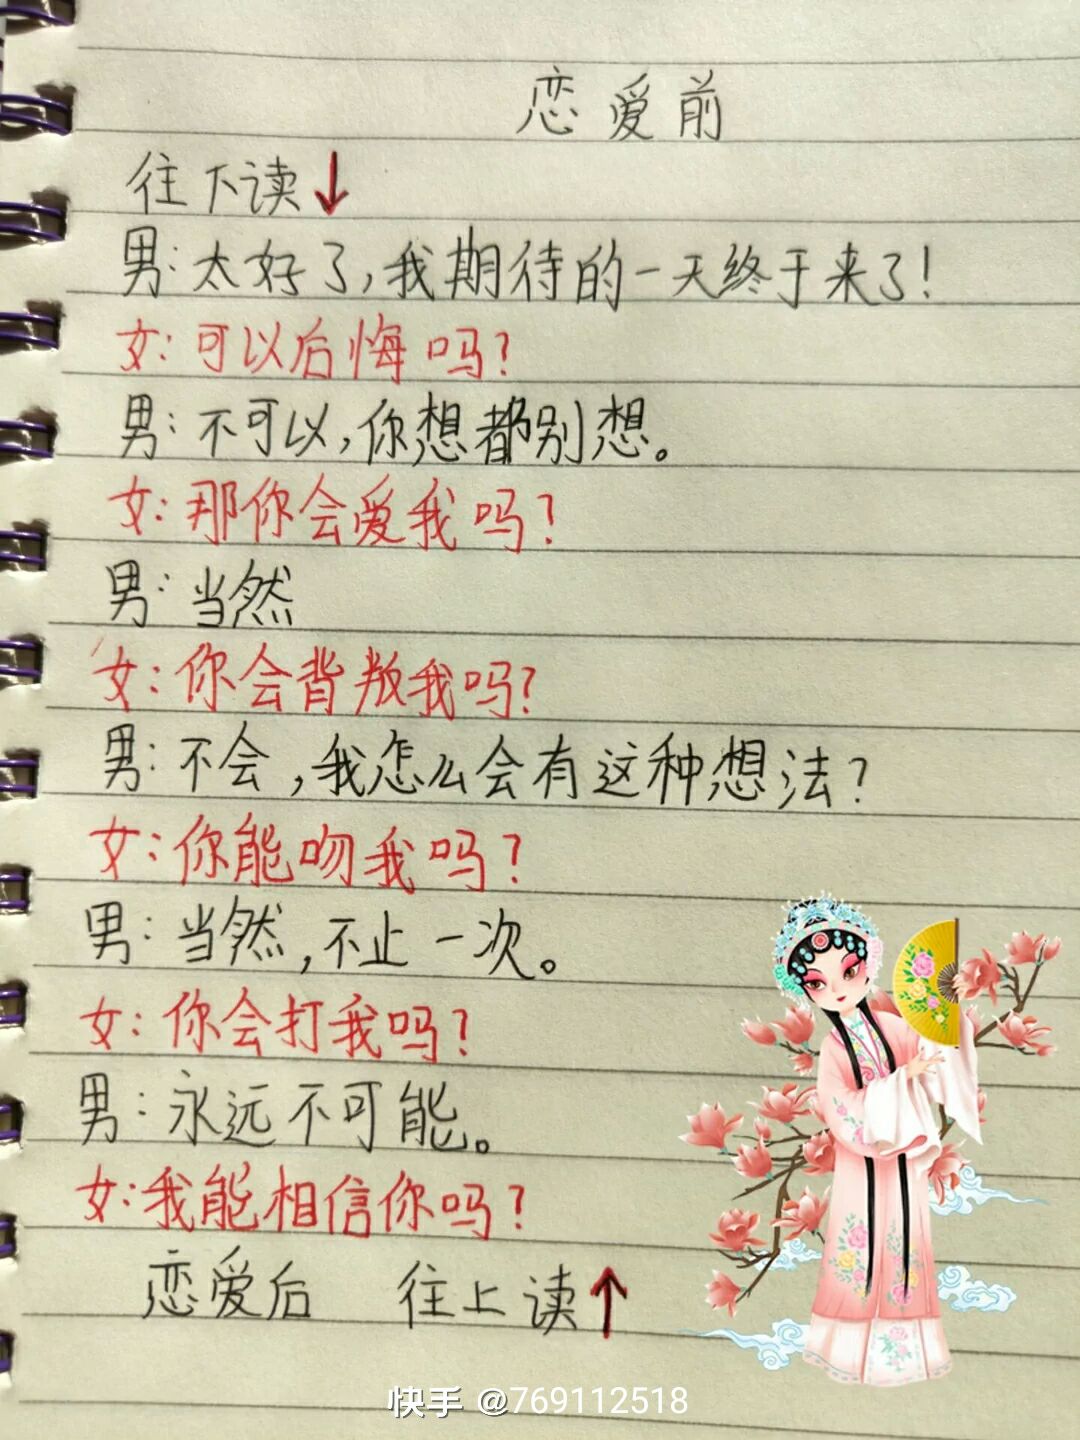 恋爱前
往下读↓
男:太好了,我期待的一天终于来了!
女:可以后悔吗?
男:不可以,你想都别想。
女:那你会爱我吗?
男:当然
女:你会背叛我吗?
男:不会,我怎么会有这种想法?
女:你能吻我吗?
男:当然,不止一次。
女:你会打我吗?
男:永远不可能。
女:我能相信你吗?
恋爱后 往上读↑
快手 @769112518